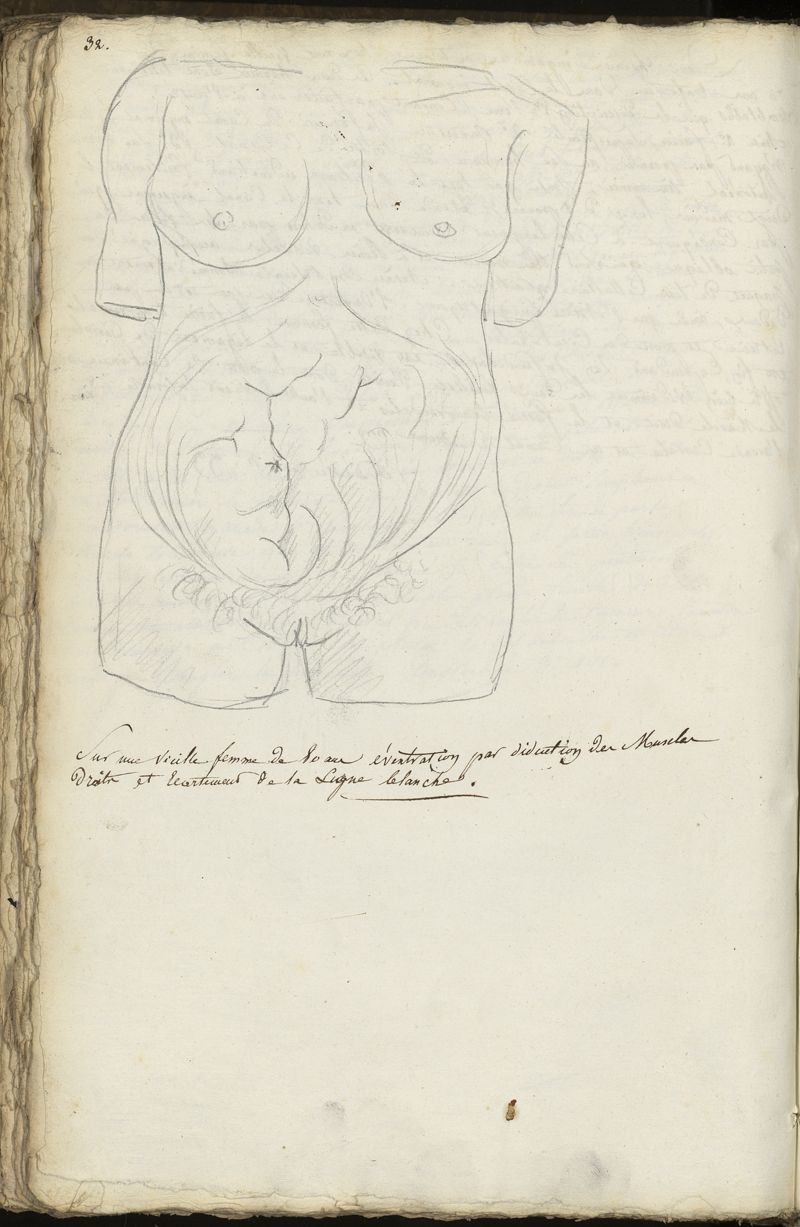 32.
Sur une vieille femme de 80 ans éventration par diduction des Muscles
Droits et Ecartement de la Ligne blanche.